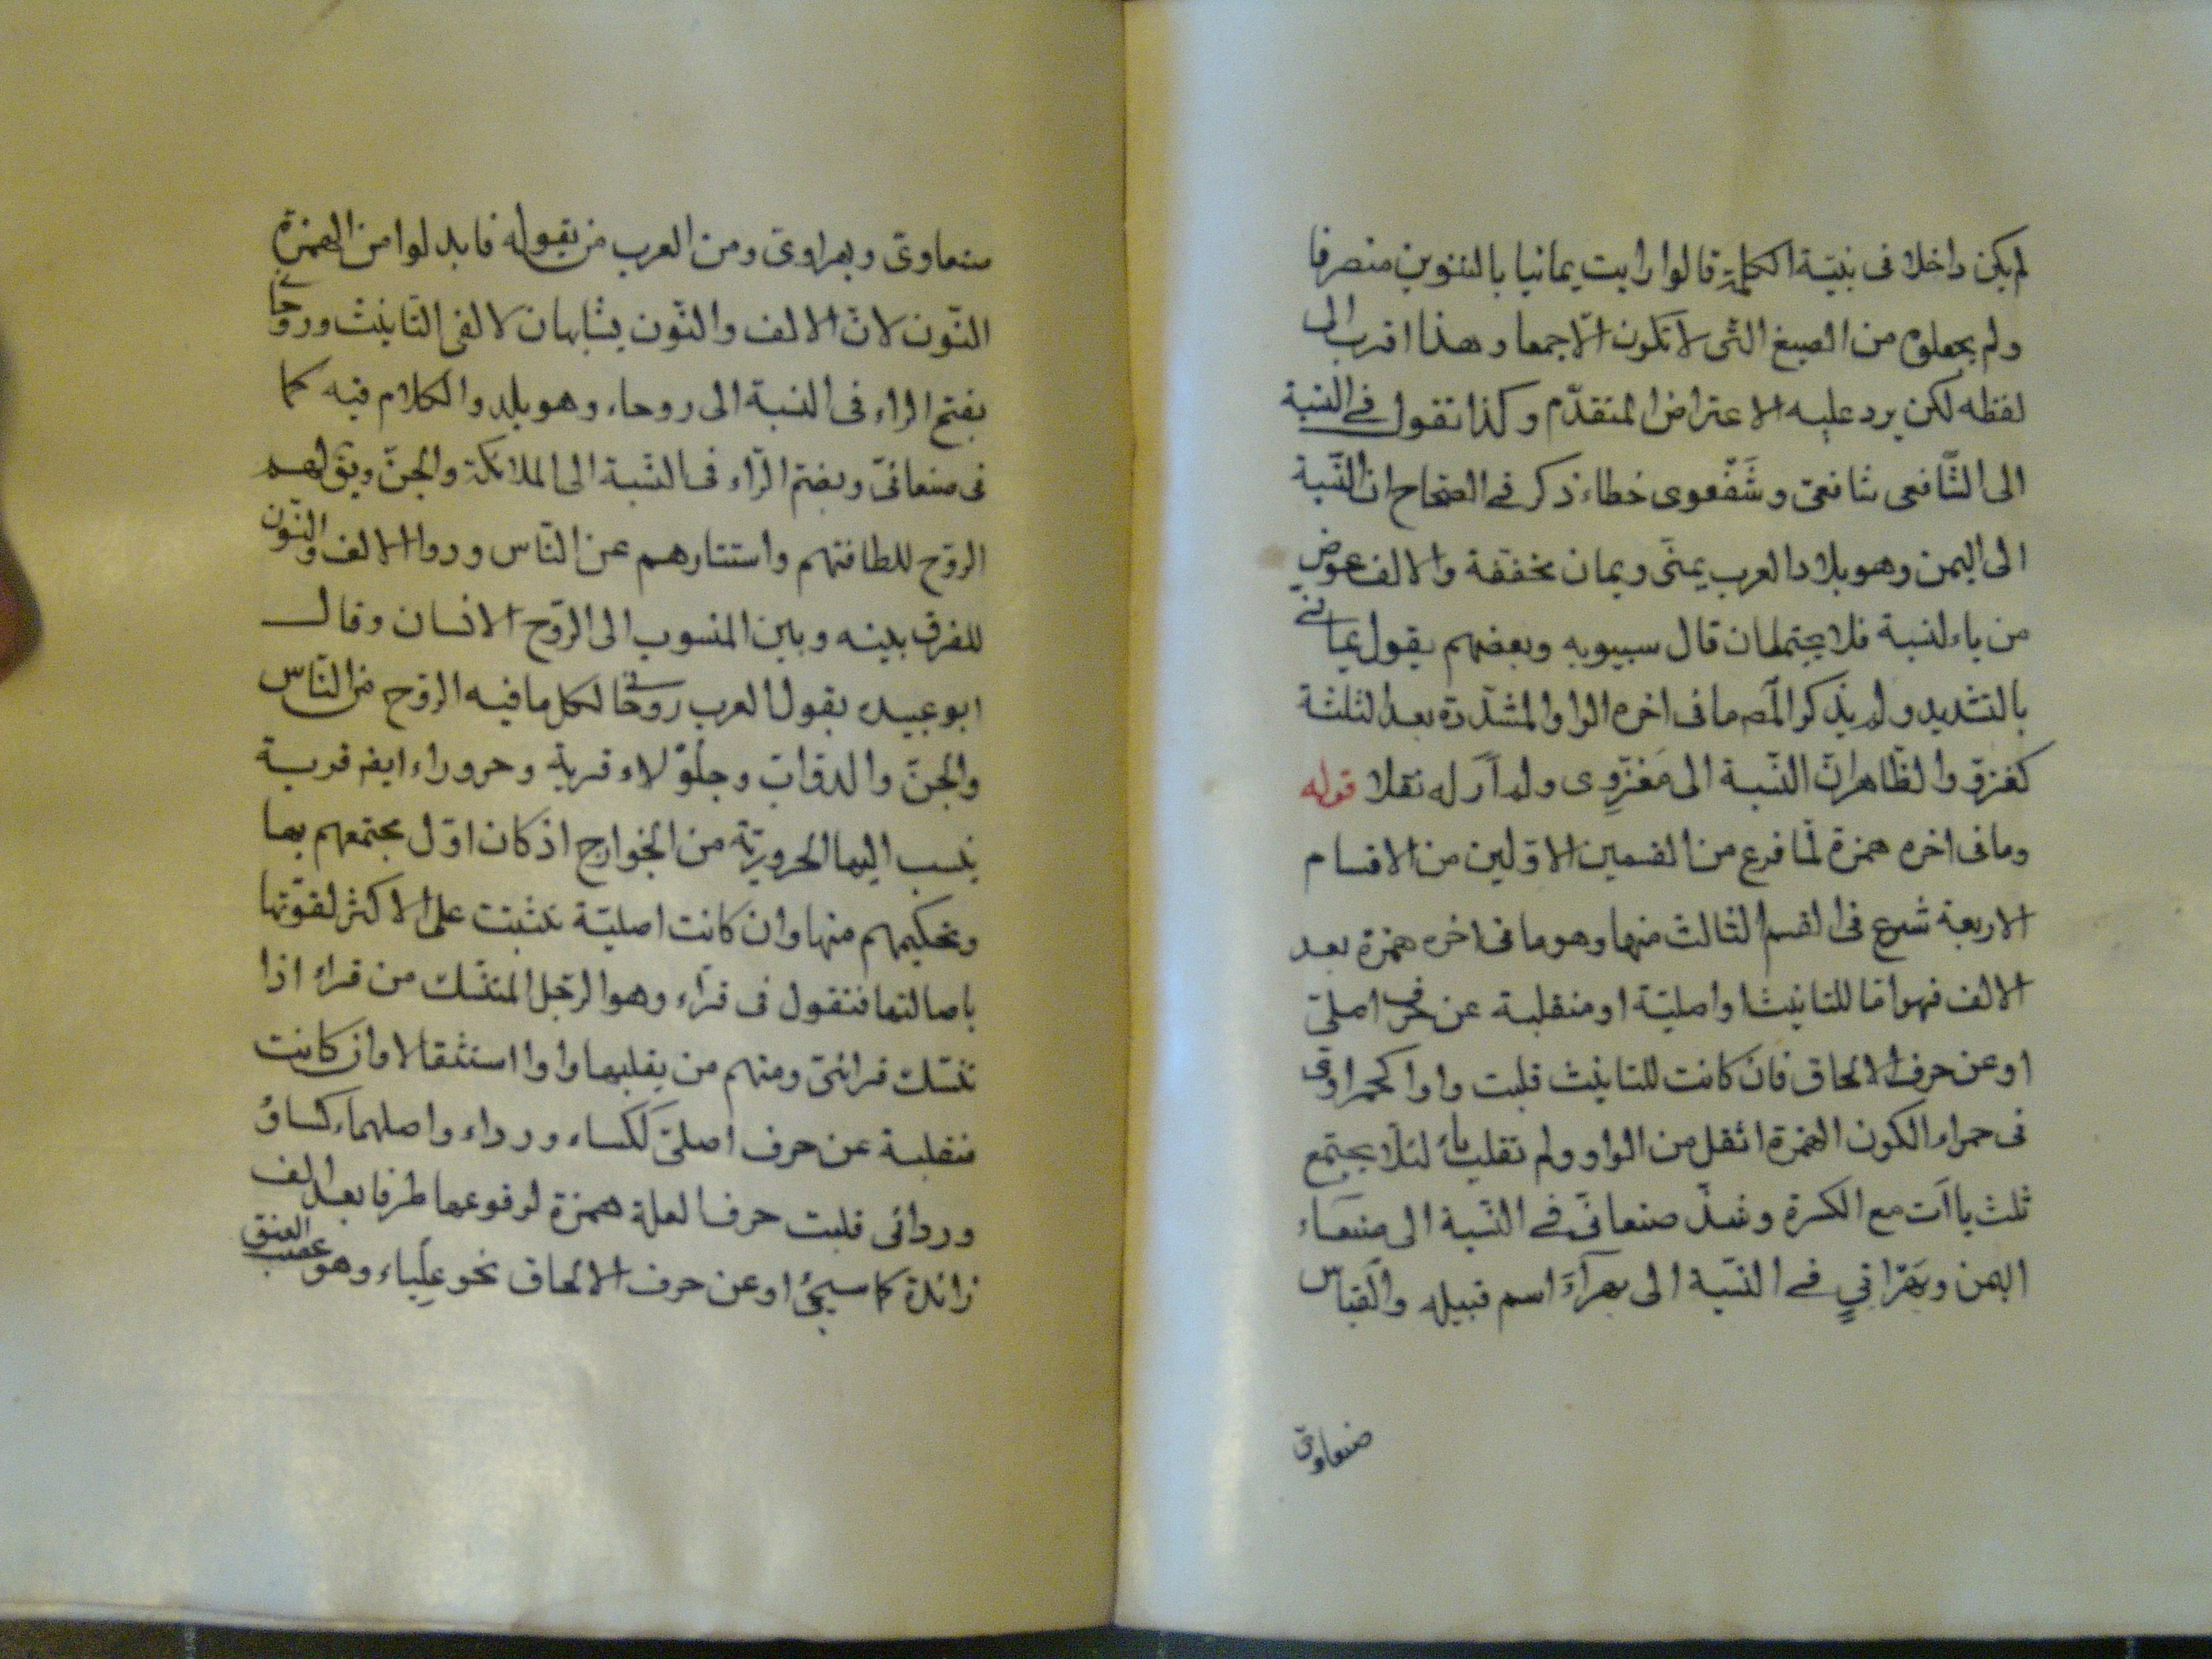 لم يكن داخلا فى بنيّة الكلمة قالوا رايت يمانيا بالتنوين منصرفا
ولم يجعلوه من الصيغ التّى لا تكون الّا جمعا وهذا اقرب الى
لفظه لكن يرد عليه الاعتراض المتقدّم وكذا تقول فے النّسبة
الى الشّافعى شافعىّ وشَفْعوى خطاء ذكر فے الصّحاح ان النّسبة
الى اليمن وهو بلاد العرب يمنىّ ويمان مخففة والالف عوض
من ياء لنسبة فلا يجتمعان قال سيبويه وبعضهم يقول يمانے
بالتشديد ولم يذكر المّص ما فى اخره الواو المشدّدة بعد الثلثة
كمغزوّ والظّاهر انّ النّسبة الى مَغزوّى ولم اَر له نقلا قوله
وما فى اخره همزة لمّا فرغ من القسمين الاوّلين من الاقسام
الاربعة شرع فى القسم الثالث منها وهو ما فى اخره همزة بعد
الالف فهو امّا للتانيث او اصليّة او منقلبة عن حرف اصلىّ
او عن حرف الالحاق فان كانت للتانيث قلبت واوا كحمراوىّ
فى حمراء لكون الهمزة اثقل من الواو ولم تقلب ياءً لئلّا يجتمع
ثلث ياآت مع الكسرة وشذّ صنعانىّ فے النّسبة الى صنعَاء
اليمن وبَهْرَانيٍّ فے النّسبة الى بهرآءَ اسم قبيله والقياس
صنعاوىّ
صنعاوىّ وبهراوىّ ومن العرب من يقوله فابدلوا من الهمزة
النّون لانّ الالف والنّون يشابهان لالفى التّانيث وروحانے
بفتح الراء فى النسبة الى روحاء وهو بلد والكلام فيه كما
فى صنعانىّ وبضم الرّاء فى النّسبة الى الملائكة والجنّ ويق لهم
الرّوح للطافتهم واستتارهم عن النّاس وردوا الالف والنّون
للفرق بينه وبين المنسوب الى الرّوح الانسان وقال
ابو عبيده يقول العرب روحانے لكل ما فيه الروح من النّاس
والجنّ والدوّاب وجلوّلاء قرية وحروراء ايض قرية
ينسب اليها الحروريّة من الخوارج اذ كان اوّل مجتمعهم بها
وتحكيمهم منها وان كانت اصليّة تثبت على الاكثر لقوّتها
باصالتها فتقول فى قرّاء وهو الرجل المتنسّك من قراء اذا
تنسّك قرائىّ ومنهم من يقلبها واوا استثقالا وان كانت
منقلبة عن حرف اصلىّ ككساء ورداء واصلهما كساوٌ
وردائى قلبت حرف العلة همزة لوقوعها طرفا بعد الف
زائدة كما سيجئ او عن حرف الالحاق نحو عِلباء وهو عصب العنق